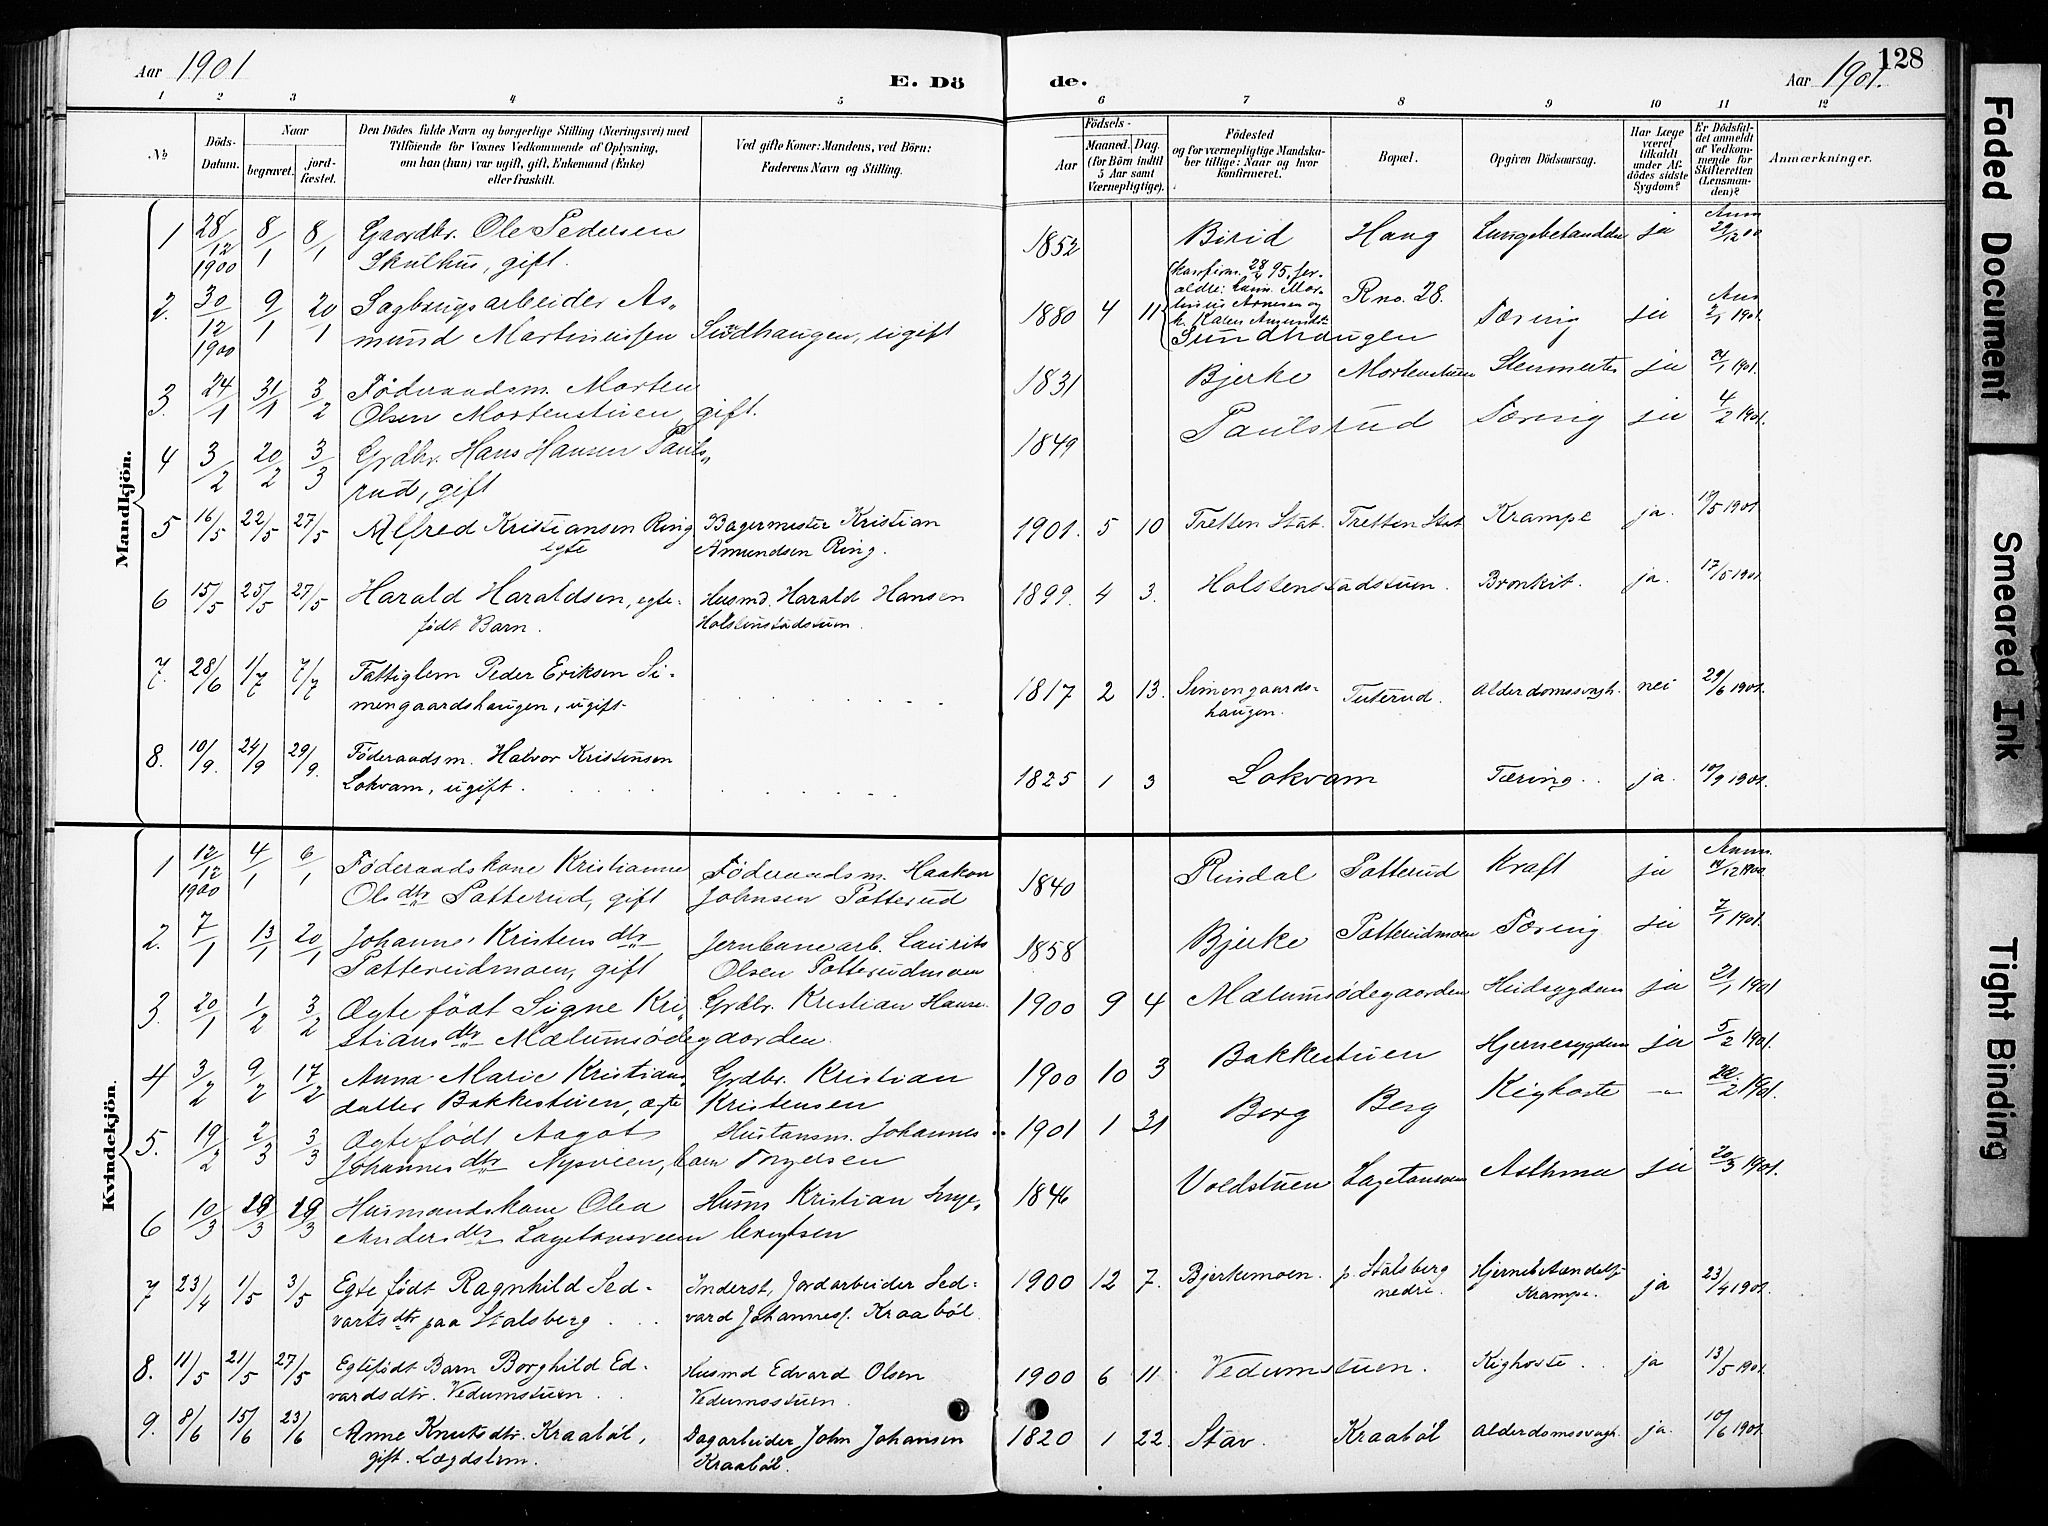 Aar 1901
E. Dö
de.
Aar 1901.
128
1 2 3 4 5 6 7 8 9 10 11 12
No
Döds-Datum.
Naar
begravet.
jord-fæstet.
Den Dödes fulde Navn og borgerlige Stilling (Næringsvei) med
Tilföiende for Voxnes Vedkommende af Oplysning,
om han (hun) var ugift, gift, Enkemand (Enke)
eller fraskilt.
Ved gifte Koner: Mandens, ved Börn:
Faderens Navn og Stilling.
Födsels-
Aar
Maaned. Dag.
(for Börn indtil
5 Aar samt
Værnepligtige).
Födested
og for værnepligtige Mandska-
ber tillige: Naar og hvor
konfirmeret.
Bopæl.
Opgiven Dödsaarsag.
Har Læge
været
tilkaldt
under Af-
dödes sidste
Sygdom?
Er Dödsfal-
det anmeldt
af Vedkom-
mende for
Skifteretten
(Lensman-
den)?
Anmærkninger.
Mandkjön.
1 28/12 1900 8/1 8/1 Gaardbr. Ole Pedersen 1852 Birid Haug ja Anm 29/12 00
Skulhus, gift.
2. 30/12 1900 9/1 20/1 Sagbrugsarbeider As- 1880 4 11 R no. 28. Tæring ja Anm 2/1 1901
mund Martinussen Sundhaugen, ugift Sundhaugen
3. 24/1 31/1 3/2 Föderaadsm. Morten 1831 Bjerke Mortenstuen ja 24/1 1901.
Olsen Mortenstuen, gift.
4 3/2 20/2 3/3 Grdbr. Hans Hansen Pauls- 1849 Paulsrud Tæring ja 4/2 1901.
rud, gift
5 16/5 22/5 27/5 Alfred Kristiansen Ring Bagermester Kristian 1901. 5 10 Tretten Stat. Tretten Stat. Krampe ja. 19/5 1901
egte Amundsen Ring.
6 15/5 25/5 27/5 Harald Haraldsen, egte- Husmd. Harald Hansen 1899. 4 3. Holstenstadstuen. Bronkit. ja. 17/5 1901
födt Barn. Holstenstadstuen.
7. 28/6 1/7 7/7 Fattiglem Peder Eriksen Si- 1817 2 13. Simengaards- Tuterud. Alderdomssvagh. nei 29/6 1901.
mengaardshaugen, ugift haugen.
8. 10/9. 24/9 29/9. Föderaadsm. Halvor Kristensen 1825 1 3 Lokvam Tæring. ja. 10/9 1901.
Lokvam, ugift.
Kvindekjön.
1 12/12 1900 4/1 6/1 Föderaadskone Kristianne Föderaadsm. Haakon 1840 Rindal Patterud Kraft ja Anm. 14/12 1900
Olsdtr Patterud, gift Johnsen Patterud
2. 7/1 13/1 20/1 Johanne Kristensdtr Jernbanearb. Laurits 1858 Bjerke Patterudmoen Tæring ja 7/1 1901.
Patterudmoen, gift Olsen Patterudmoen
3. 20/1 1/2 3/2 Ægtefödt Signe Kri- Grdbr. Kristian Hanse- 1900 9 4 Mælumsødegaarden ja 21/1 1901
stiansdtr Mælumsødegaarden.
4 3/2 9/2 17/2 Anna Marie Kristians- Grdbr. Kristian 1900 10 3 Bakkestuen Hjernesygdom ja 5/2 1901.
datter Bakkestuen, ægte Kristensen
5. 19/2 2/3 3/3 Ægtefödt Aagot Hustansm. Johannes 1901 1 31 Berg Berg Kighoste — 22/2 1901.
Johannesdtr Nysveen, barn Torgersen
6 10/3 29/3 29/3 Husmandskone Olea Husm Kristian Inge- 1846 Voldstuen Lagetonsveen Asthma ja 20/3 1901.
Andersdtr Lagetonsveen brigtsen
7 23/4 1/5 3/5 Egtefödt Ragnhild Sed- Inderst, Jordarbeider Sed- 1900 12 7. Bjerkemoen. p. Stalsberg Hjernebetændelse ja 23/4 1901.
vartsdtr paa Stalsberg vard Johannes. Kraaböl. nedre. Krampe.
8. 11/5 21/5 27/5 Egtefödt Barn Borghild Ed- Husmd Edvard Olsen 1900 6 11. Vedumstuen. Kighoste. ja 13/5 1901.
vardsdtr. Vedumstuen Vedumsstuen.
9. 8/6 15/6 23/6 Anne Knutsdtr. Kraaböl, Dagarbeider John Johansen 1820 1 22. Stav. Kraaböl Alderdomssvagh. ja. 10/6 1901.
gift. Lægdslem. Kraaböl.
Faded Document
Smeared Ink
Tight Binding